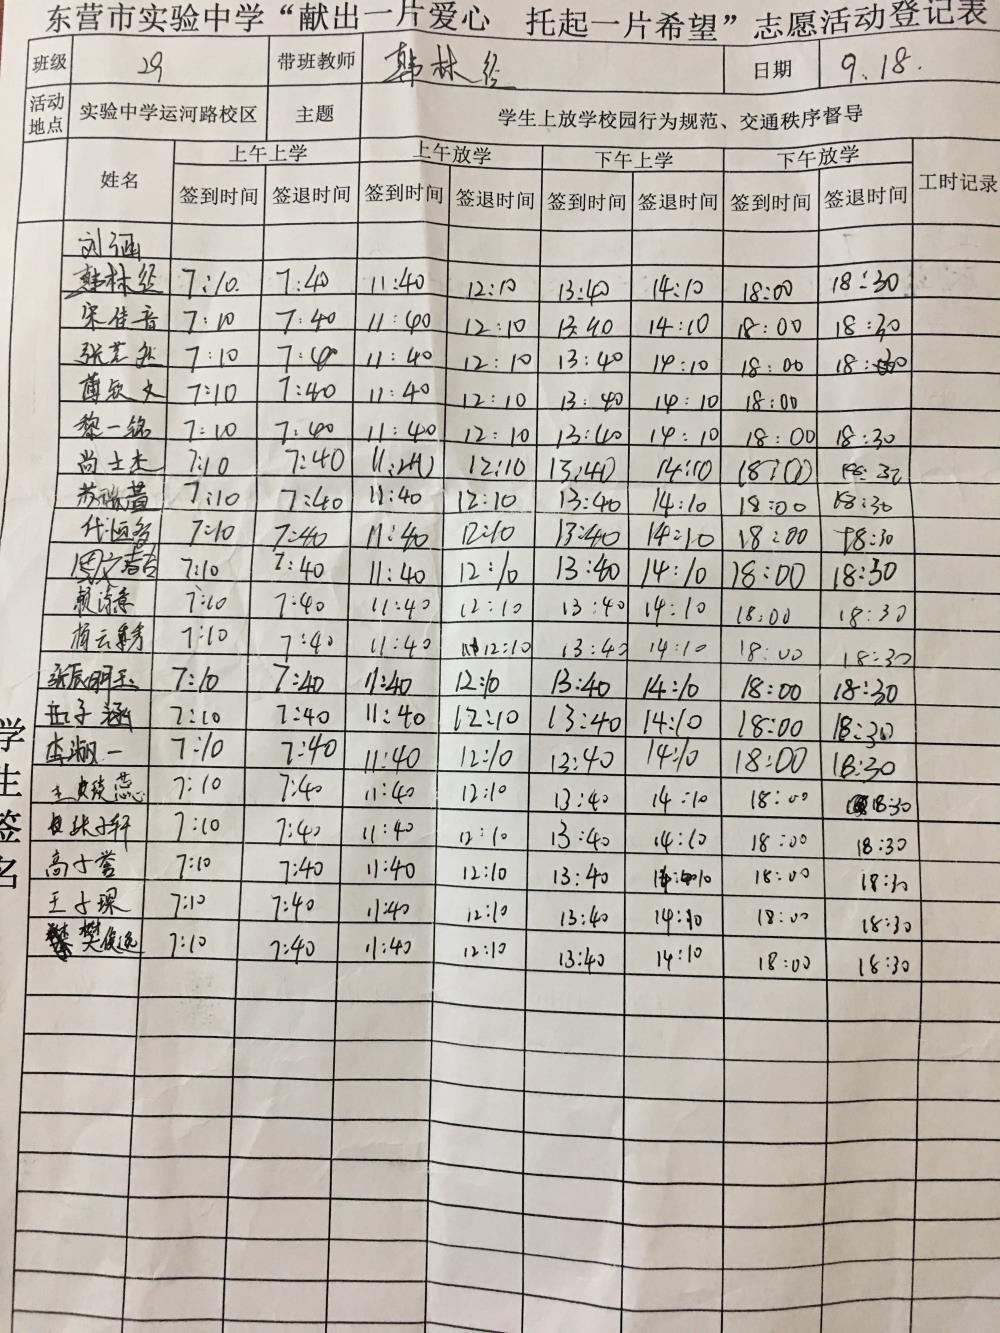 东营市实验中学“献出一片爱心 托起一片希望”志愿活动登记表
班级 29 带班教师 韩林 日期 9.18.
活动地点 实验中学运河路校区 主题 学生上放学校园行为规范、交通秩序督导
姓名 上午上学 上午放学 下午上学 下午放学 工时记录
签到时间 签退时间 签到时间 签退时间 签到时间 签退时间 签到时间 签退时间
学生签名
刘涵
韩林 7:10 7:40 11:40 12:10 13:40 14:10 18:00 18:30
宋佳音 7:10 7:40 11:40 12:10 13:40 14:10 18:00 18:30
张 7:10 7:40 11:40 12:10 13:40 14:10 18:00 18:30
薄欣文 7:10 7:40 11:40 12:10 13:40 14:10 18:00
黎一铭 7:10 7:40 11:40 12:10 13:40 14:10 18:00 18:30
尚士杰 7:10 7:40 11:40 12:10 13:40 14:10 18:00 18:30
苏瑞萱 7:10 7:40 11:40 12:10 13:40 14:10 18:00 18:30
代恒 7:10 7:40 11:40 12:10 13:40 14:10 18:00 18:30
周文 7:10 7:40 11:40 12:10 13:40 14:10 18:00 18:30
7:10 7:40 11:40 12:10 13:40 14:10 18:00 18:30
杨云 7:10 7:40 11:40 12:10 13:40 14:10 18:00 18:30
张辰明玉 7:10 7:40 11:40 12:10 13:40 14:10 18:00 18:30
子涵 7:10 7:40 11:40 12:10 13:40 14:10 18:00 18:30
李淑一 7:10 7:40 11:40 12:10 13:40 14:10 18:00 18:30
王蕊 7:10 7:40 11:40 12:10 13:40 14:10 18:00 18:30
张子轩 7:10 7:40 11:40 12:10 13:40 14:10 18:00 18:30
高子誉 7:10 7:40 11:40 12:10 13:40 14:10 18:00 18:30
王子琛 7:10 7:40 11:40 12:10 13:40 14:10 18:00 18:30
樊俊逸 7:10 7:40 11:40 12:10 13:40 14:10 18:00 18:30